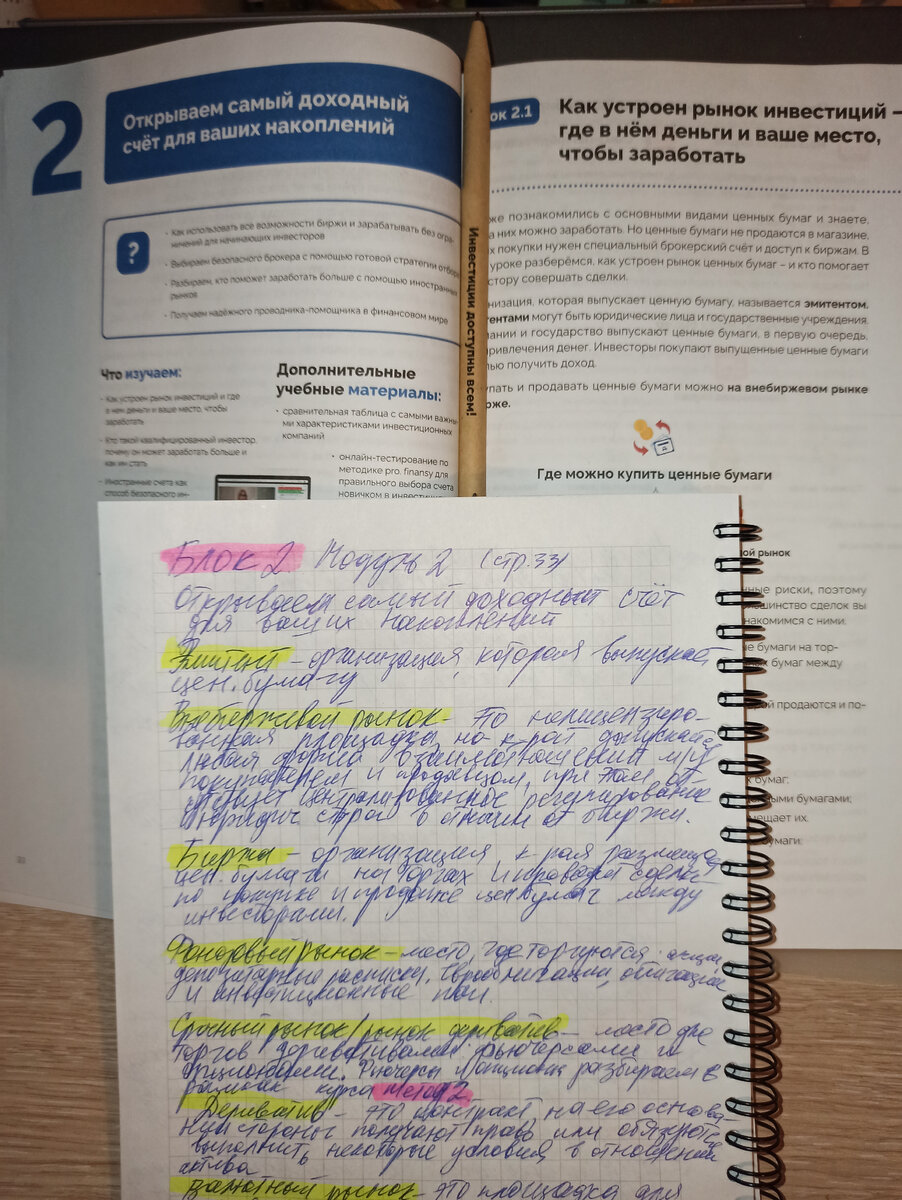 2
Открываем самый доходный
счёт для ваших накоплений
?
- Как использовать все возможности биржи и зарабатывать без огра-
ничений для начинающих инвесторов
- Выбираем безопасного брокера с помощью готовой стратегии отбор
- Разбираем, кто поможет заработать больше с помощью иностранных
рынков
- Получаем надёжного проводника-помощника в финансовом мире
Что изучаем:
- Как устроен рынок инвестиций и где
в нём деньги и ваше место, чтобы
заработать
- Кто такой квалифицированный инвестор,
почему он может заработать больше и
как им стать
- Иностранные счета как
способ безопасного ин-
Дополнительные
учебные материалы:
- сравнительная таблица с самыми важны-
ми характеристиками инвестиционных
компаний
- онлайн-тестирование по
методике pro. finansy для
правильного выбора счета
новичком в инвестиц
Инвестиции доступны всем!
ок 2.1
Как устроен рынок инвестиций –
где в нём деньги и ваше место,
чтобы заработать
же познакомились с основными видами ценных бумаг и знаете,
а них можно заработать. Но ценные бумаги не продаются в магазине,
х покупки нужен специальный брокерский счёт и доступ к биржам. В
уроке разберёмся, как устроен рынок ценных бумаг – и кто помогает
стору совершать сделки.
низация, которая выпускает ценную бумагу, называется эмитентом.
тентами могут быть юридические лица и государственные учреждения.
пании и государство выпускают ценные бумаги, в первую очередь,
ривлечения денег. Инвесторы покупают выпущенные ценные бумаги
лью получить доход.
упать и продавать ценные бумаги можно на внебиржевом рынке
рже.
Где можно купить ценные бумаги
ой рынок
нные риски, поэтому
шинство сделок вы
накомимся с ними.
е бумаги на тор-
ых бумаг между
рой продаются и по-
х бумаг;
ными бумагами;
мещает их.
бумаги:
Блок 2 Модуль 2 (стр.33)
Открываем самый доходный счёт
для ваших накоплений
Эмитент - организация, которая выпускает
цен. бумагу
Внебиржевой рынок - это нелицензиро-
ванная площадка, на к-рой допускается
любая форма взаимоотношений м/у
покупателем и продавцом, при этом от
централизованное регулирование
и юридич. строй в отличии от биржи.
Биржа - организация, к-рая размещает
цен. бумаги на торгах и проводит сделки
по покупке и продаже цен бумаг между
инвесторами.
Фондовый рынок - место, где торгуются акции,
депозитарные расписки, облигации
и инвестиционные паи.
Срочный рынок/рынок деривативов - место для
торгов деривативами фьючерсами и
опционами. Фьючерсы и опционы разбираем в
рамках курса Метод 2
Дериватив - это контракт, на его основа
нии стороны получают право или обязуются
выполнить некоторые условия в отношении
актива
Валютный рынок - это площадка для